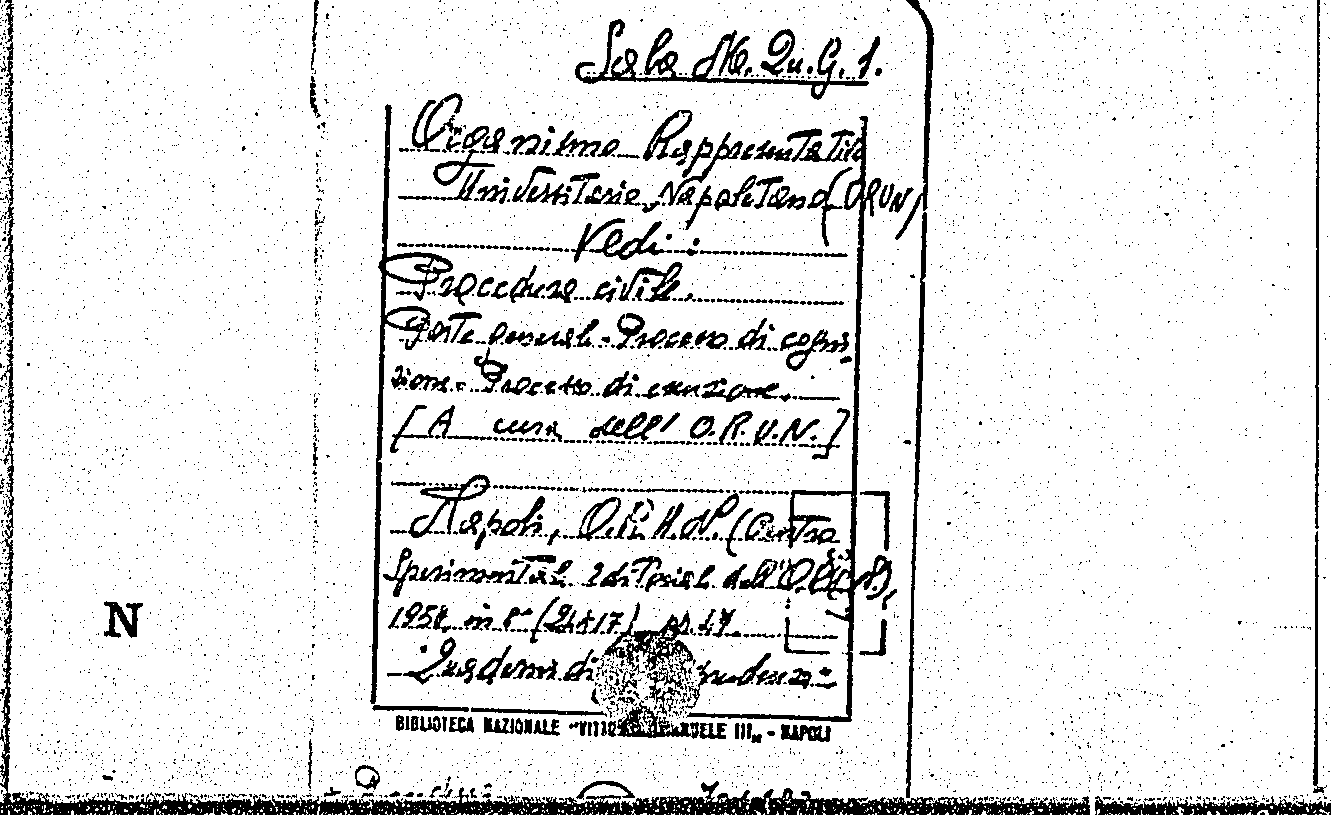 Sala M. Qu. G. 1.
Organismo Rappresentativo
Universitario Napoletano (ORUN)
Vedi:
Procedura civile.
Parte generale - Processo di cogni-
zione - Processo di esecuzione.
[A cura dell' O.R.U.N.]
Napoli, (Centro
Sperimentale Editoriale dell'
in 8° (24x17) pp. 47.
Quaderni di
N
BIBLIOTECA NAZIONALE "VITTORIO EMANUELE III" - NAPOLI